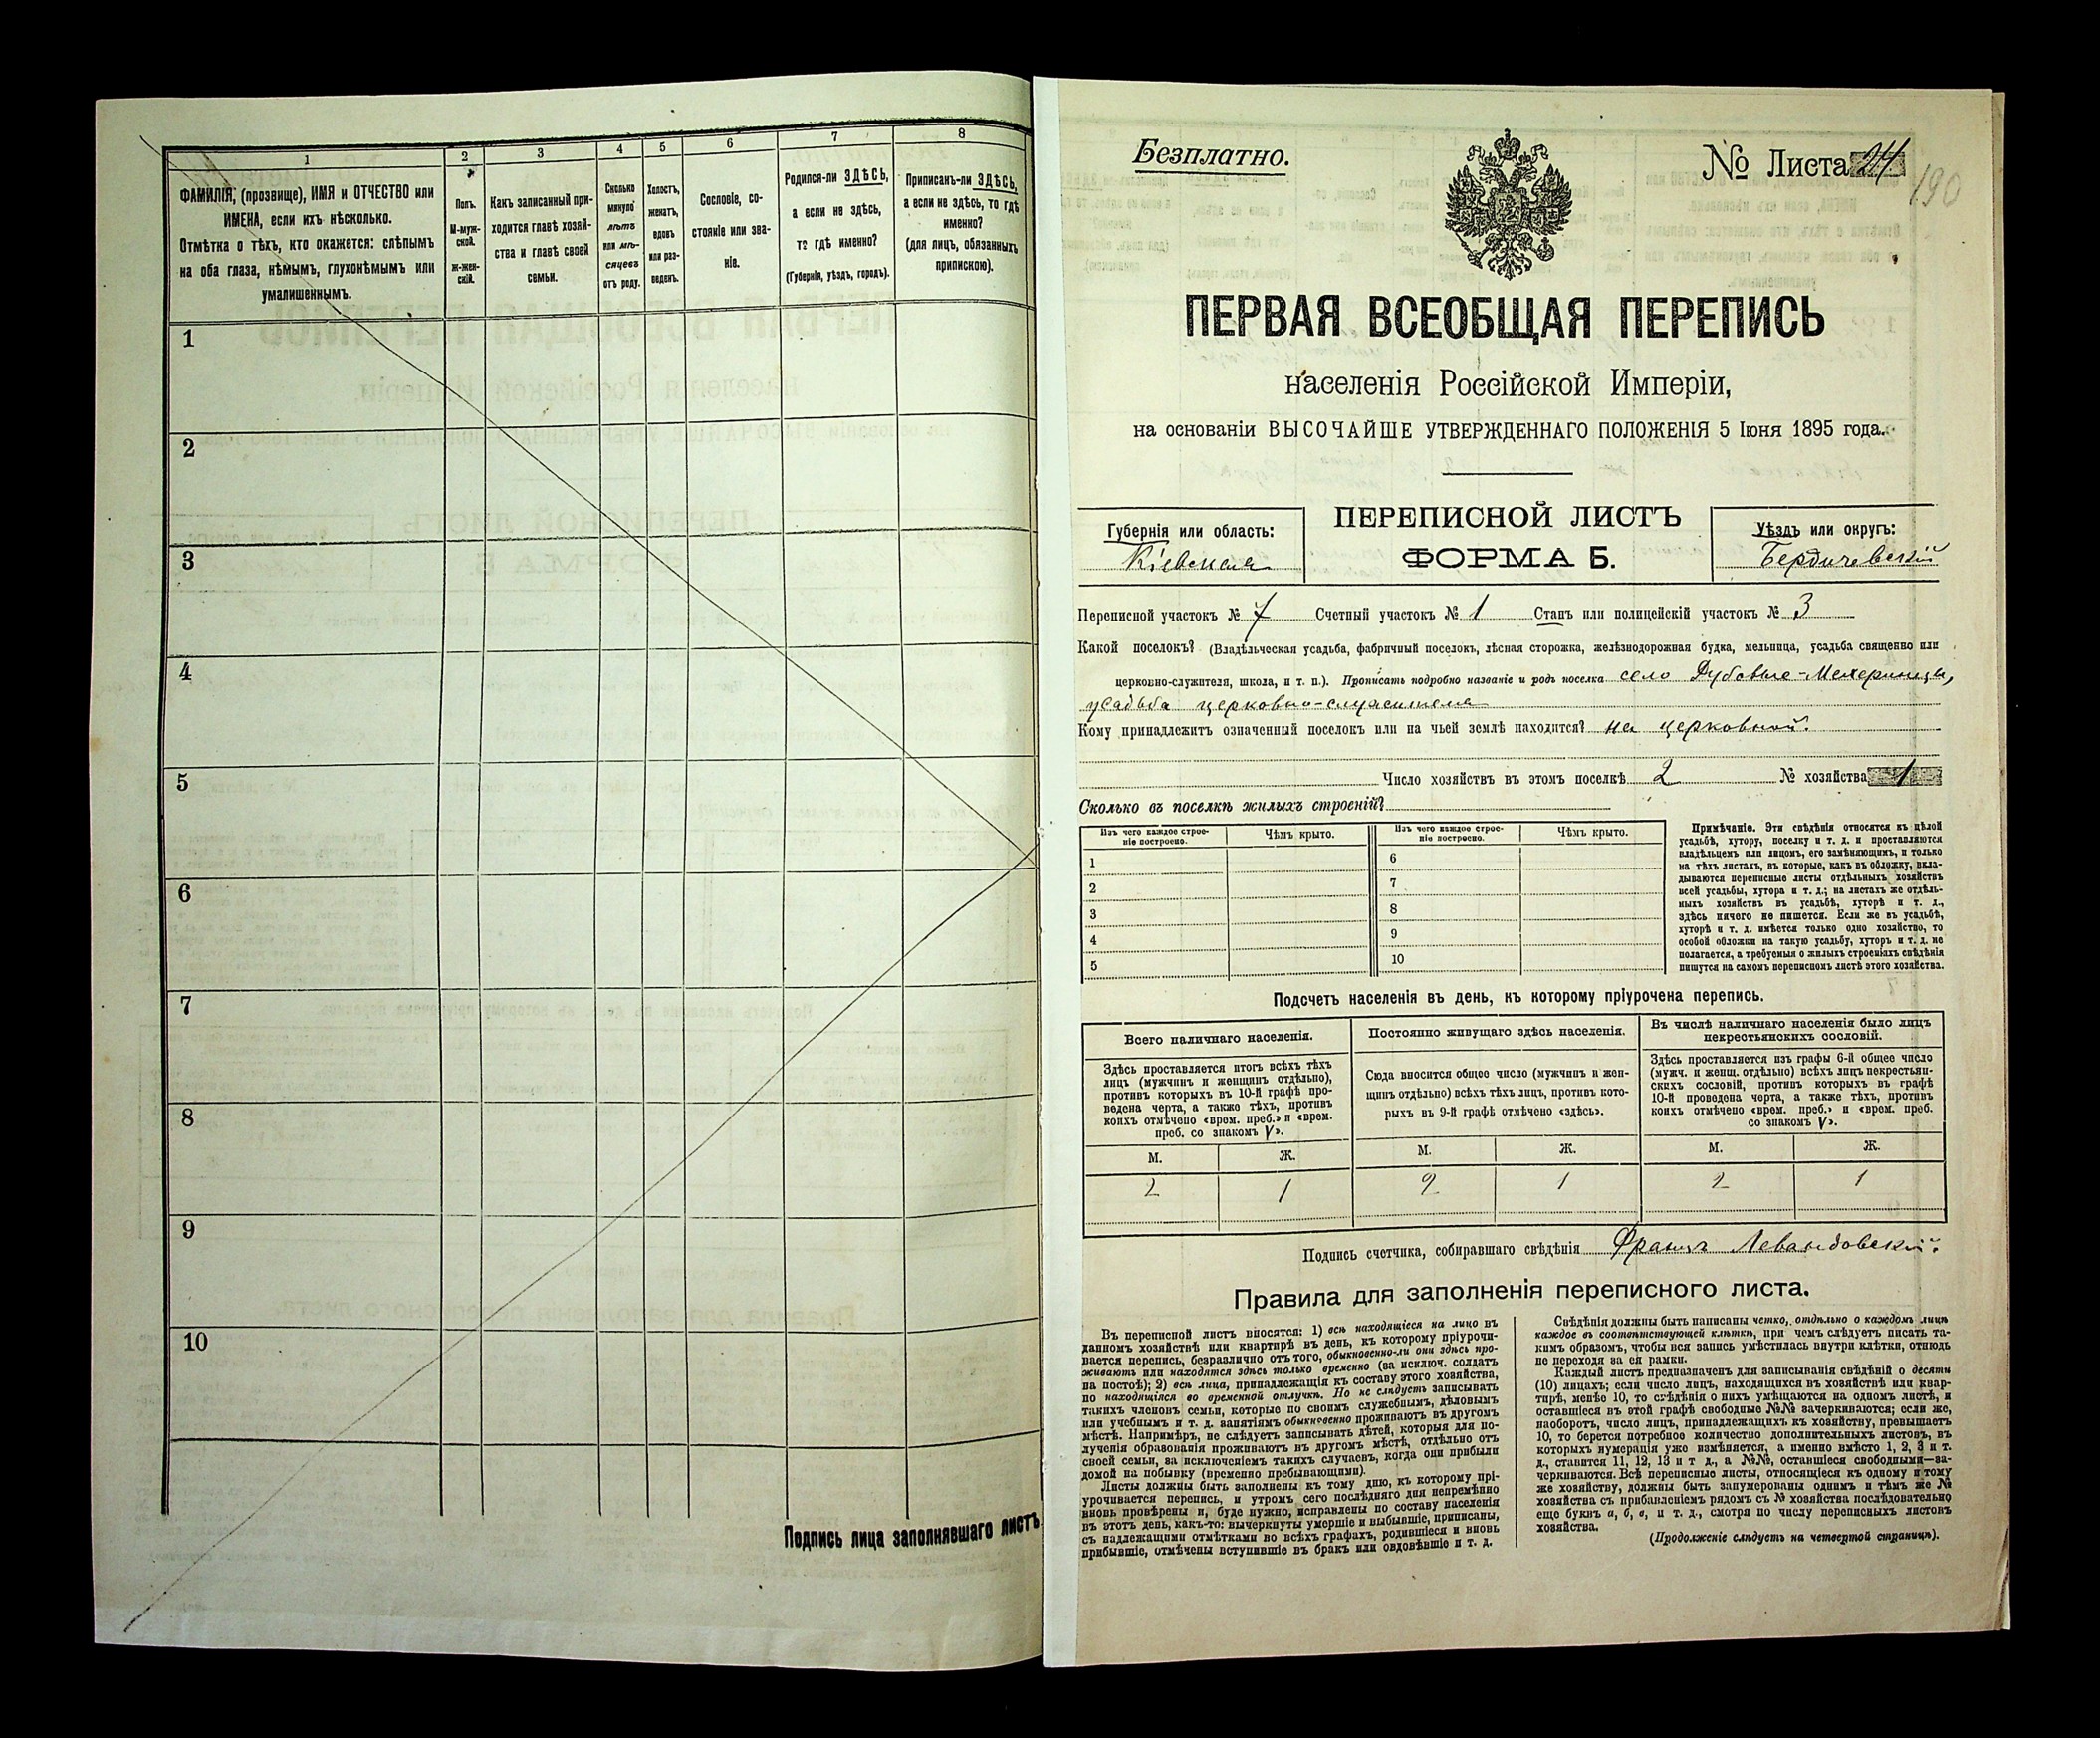 1
2
3
4
5
6
7
8
ФАМИЛІЯ, (прозвище), ИМЯ и ОТЧЕСТВО или
ИМЕНА, если ихъ нѣсколько.
Отмѣтка о тѣхъ, кто окажется: слѣпымъ
на оба глаза, нѣмымъ, глухонѣмымъ или
умалишеннымъ.
Полъ.
М-муж-
ской.
Ж-жен-
скій.
Какъ записанный при-
ходится главѣ хозяй-
ства и главѣ своей
семьи.
Сколько
минуло
лѣтъ
или мѣ-
сяцевъ
отъ роду.
Холостъ,
женатъ,
вдовъ
или раз-
веденъ.
Сословіе, со-
стояніе или зва-
ніе.
Родился-ли ЗДѢСЬ,
а если не здѣсь,
то гдѣ именно?
(Губернія, уѣздъ, городъ).
Приписанъ-ли ЗДѢСЬ,
а если не здѣсь, то гдѣ
именно?
(для лицъ, обязанныхъ
припискою).
1
2
3
4
5
6
7
8
9
10
Подпись лица заполнявшаго листъ
Безплатно.
№ Листа 24
190
ПЕРВАЯ ВСЕОБЩАЯ ПЕРЕПИСЬ
населенія Россійской Имперіи,
на основаніи ВЫСОЧАЙШЕ УТВЕРЖДЕННАГО ПОЛОЖЕНІЯ 5 Іюня 1895 года.
Губернія или область:
Кіевская
ПЕРЕПИСНОЙ ЛИСТЪ
ФОРМА Б.
Уѣздъ или округъ:
Бердичевскій
Переписной участокъ № 7 Счетный участокъ № 1 Станъ или полицейскій участокъ № 3
Какой поселокъ? (Владѣльческая усадьба, фабричный поселокъ, лѣсная сторожка, желѣзнодорожная будка, мельница, усадьба священно или
церковно-служителя, школа, и т. п.). Прописать подробно названіе и родъ поселка село Дубовые-Мехеринцы,
усадьба церковно-служителя
Кому принадлежитъ означенный поселокъ или на чьей землѣ находится? на церковной.
Число хозяйствъ въ этомъ поселкѣ 2 № хозяйства 1
Сколько въ поселкѣ жилыхъ строеній?
Изъ чего каждое строе-
ніе построено.
Чѣмъ крыто.
Изъ чего каждое строе-
ніе построено.
Чѣмъ крыто.
1
2
3
4
5
6
7
8
9
10
Примѣчаніе. Эти свѣдѣнія относятся къ цѣлой
усадьбѣ, хутору, поселку и т. д. и проставляются
владѣльцемъ или лицомъ, его замѣняющимъ, и только
на тѣхъ листахъ, въ которые, какъ въ обложку, вкла-
дываются переписные листы отдѣльныхъ хозяйствъ
всей усадьбы, хутора и т. д.; на листахъ же отдѣль-
ныхъ хозяйствъ въ усадьбѣ, хуторѣ и т. д.,
здѣсь ничего не пишется. Если же въ усадьбѣ,
хуторѣ и т. д. имѣется только одно хозяйство, то
особой обложки на такую усадьбу, хуторъ и т. д. не
полагается, а требуемыя о жилыхъ строеніяхъ свѣдѣнія
пишутся на самомъ переписномъ листѣ этого хозяйства.
Подсчетъ населенія въ день, къ которому пріурочена перепись.
Всего наличнаго населенія.
Здѣсь проставляется итогъ всѣхъ тѣхъ
лицъ (мужчинъ и женщинъ отдѣльно),
противъ которыхъ въ 10-й графѣ про-
ведена черта, а также тѣхъ, противъ
коихъ отмѣчено «врем. преб.» и «врем.
преб. со знакомъ V».
Постоянно живущаго здѣсь населенія.
Сюда вносится общее число (мужчинъ и жен-
щинъ отдѣльно) всѣхъ тѣхъ лицъ, противъ кото-
рыхъ въ 9-й графѣ отмѣчено «здѣсь».
Въ числѣ наличнаго населенія было лицъ
некрестьянскихъ сословій.
Здѣсь проставляется изъ графы 6-й общее число
(мужч. и женщ. отдѣльно) всѣхъ лицъ некрестьян-
скихъ сословій, противъ которыхъ въ графѣ
10-й проведена черта, а также тѣхъ, противъ
коихъ отмѣчено «врем. преб.» и «врем. преб.
со знакомъ V».
М. Ж. М. Ж. М. Ж.
2 1 2 1 2 1
Подпись счетчика, собиравшаго свѣдѣнія Францъ Левандовскій.
Правила для заполненія переписного листа.
Въ переписной листъ вносятся: 1) всѣ находящіеся на лицо въ
данномъ хозяйствѣ или квартирѣ въ день, къ которому пріурочи-
вается перепись, безразлично отъ того, обыкновенно-ли они здѣсь про-
живаютъ или находятся здѣсь только временно (за исключ. солдатъ
на постоѣ); 2) всѣ лица, принадлежащія къ составу этого хозяйства,
но находящіяся во временной отлучкѣ. Но не слѣдуетъ записывать
такихъ членовъ семьи, которые по своимъ служебнымъ, дѣловымъ
или учебнымъ и т. д. занятіямъ обыкновенно проживаютъ въ другомъ
мѣстѣ. Напримѣръ, не слѣдуетъ записывать дѣтей, которыя для по-
лученія образованія проживаютъ въ другомъ мѣстѣ, отдѣльно отъ
своей семьи, за исключеніемъ такихъ случаевъ, когда они прибыли
домой на побывку (временно пребывающими).
Листы должны быть заполнены къ тому дню, къ которому прі-
урочивается перепись, и утромъ сего послѣдняго дня непремѣнно
вновь провѣрены и, буде нужно, исправлены по составу населенія
въ этотъ день, какъ-то: вычеркнуты умершіе и выбывшіе, приписаны,
съ надлежащими отмѣтками во всѣхъ графахъ, родившіеся и вновь
прибывшіе, отмѣчены вступившіе въ бракъ или овдовѣвшіе и т. д.
Свѣдѣнія должны быть написаны четко, отдѣльно о каждомъ лицѣ
каждое въ соотвѣтствующей клѣткѣ, при чемъ слѣдуетъ писать та-
кимъ образомъ, чтобы вся запись умѣстилась внутри клѣтки, отнюдь
не переходя за ея рамки.
Каждый листъ предназначенъ для записыванія свѣдѣній о десяти
(10) лицахъ; если число лицъ, находящихся въ хозяйствѣ или квар-
тирѣ, менѣе 10, то свѣдѣнія о нихъ умѣщаются на одномъ листѣ, и
оставшіеся въ этой графѣ свободные №№ зачеркиваются; если же,
наоборотъ, число лицъ, принадлежащихъ къ хозяйству, превышаетъ
10, то берется потребное количество дополнительныхъ листовъ, въ
которыхъ нумерація уже измѣняется, а именно вмѣсто 1, 2, 3 и т.
д., ставится 11, 12, 13 и т д., а №№, оставшіеся свободными—за-
черкиваются. Всѣ переписные листы, относящіеся къ одному и тому
же хозяйству, должны быть занумерованы однимъ и тѣмъ же №
хозяйства съ прибавленіемъ рядомъ съ № хозяйства послѣдовательно
еще буквъ а, б, в, и т. д., смотря по числу переписныхъ листовъ
хозяйства.
(Продолженіе слѣдуетъ на четвертой страницѣ).